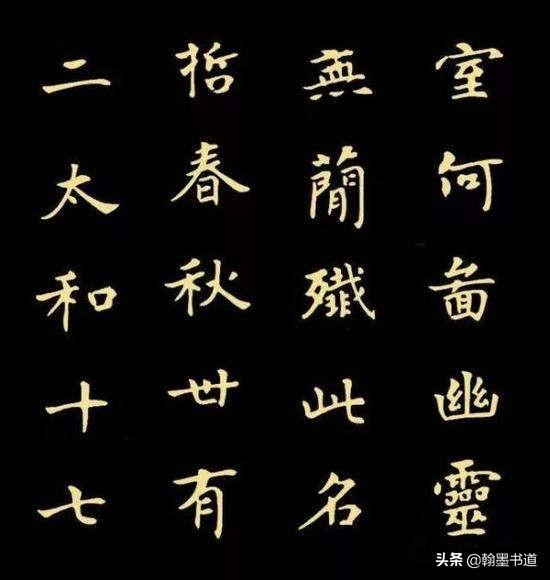 室何啚幽靈
無簡殲此名
哲春秋丗有
二太和十七
头条 @翰墨书道